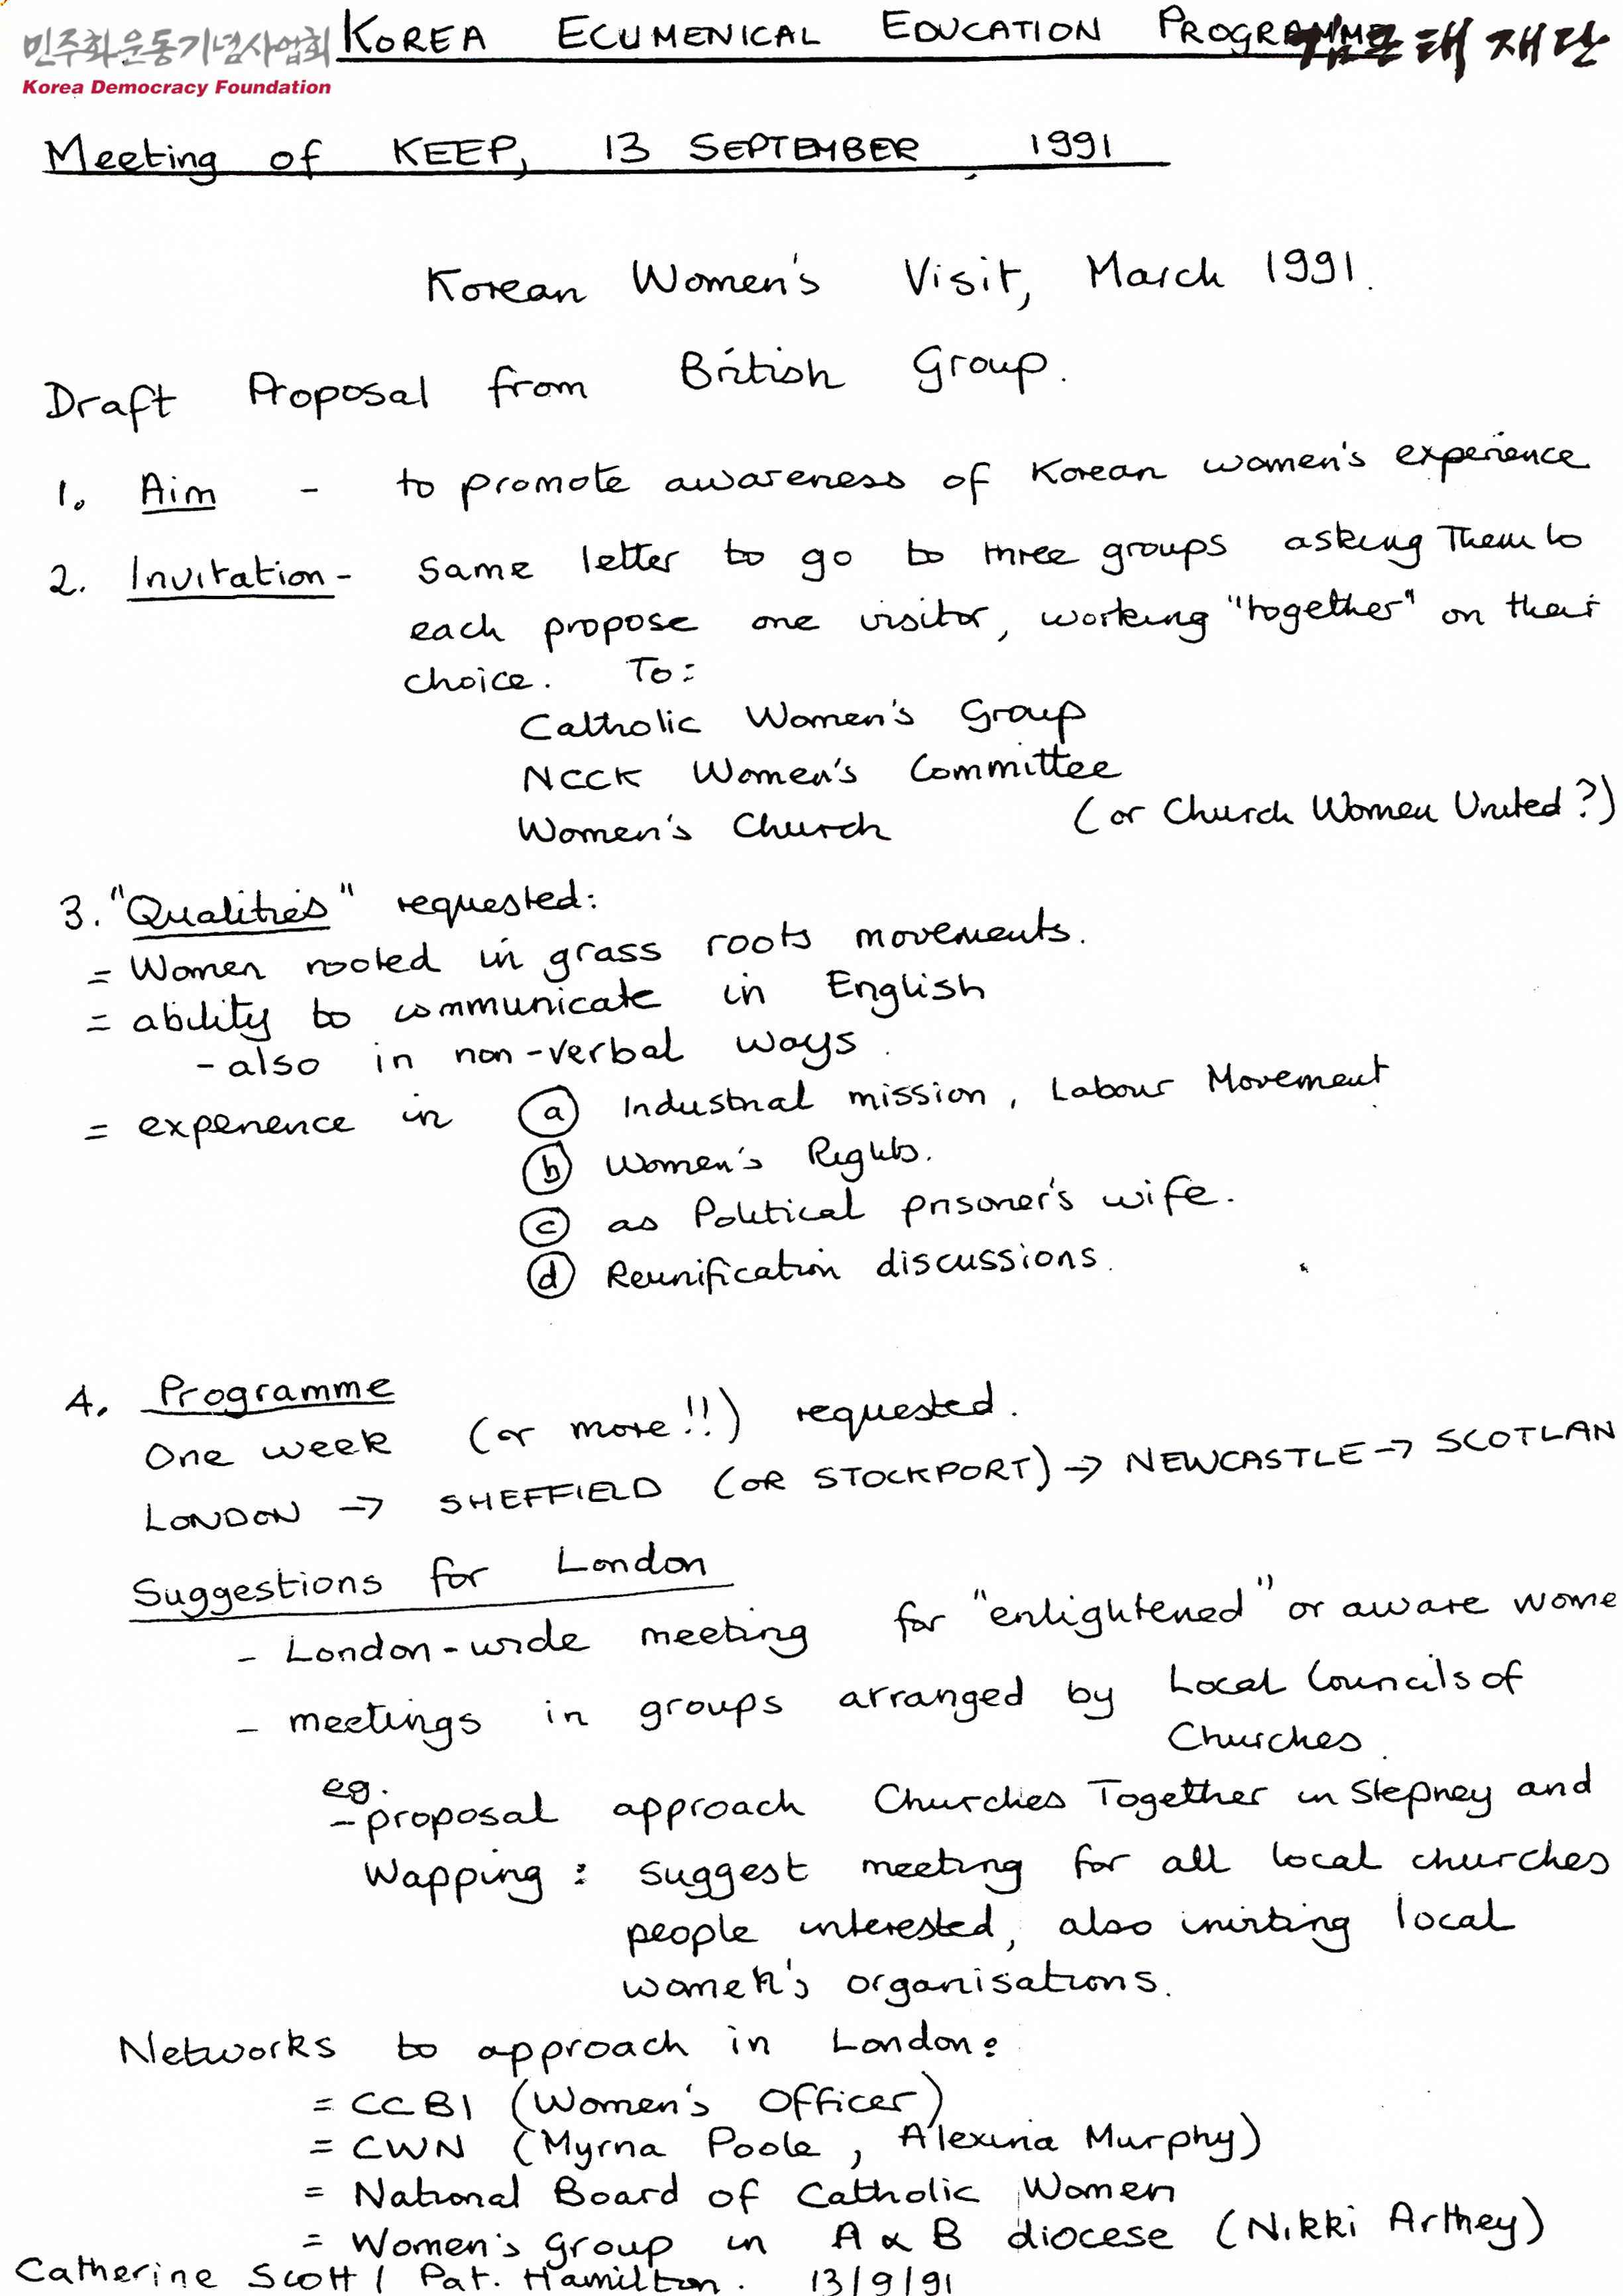 민주화운동기념사업회
Korea Democracy Foundation
KOREA ECUMENICAL EDUCATION PROGRAMME
김근태재단
Meeting of KEEP, 13 SEPTEMBER 1991
Korean Women's Visit, March 1991.
Draft Proposal from British Group.
1. Aim - to promote awareness of Korean women's experience
2. Invitation - Same letter to go to three groups asking them to
each propose one visitor, working "together" on their
choice. To:
Catholic Women's Group
NCCK Women's Committee
Women's Church (or Church Women United?)
3. "Qualities" requested:
= Women rooted in grass roots movements.
= ability to communicate in English
- also in non-verbal ways.
= experience in (a) Industrial mission, Labour Movement
(b) Women's Rights.
(c) as Political prisoner's wife.
(d) Reunification discussions.
4. Programme
One week (or more!!) requested.
LONDON → SHEFFIELD (OR STOCKPORT) → NEWCASTLE → SCOTLAN
Suggestions for London
- London-wide meeting for "enlightened" or aware wome
- meetings in groups arranged by Local Councils of
Churches.
eg.
- proposal approach Churches Together in Stepney and
Wapping : suggest meeting for all local churches
people interested, also inviting local
women's organisations.
Networks to approach in London:
= CCBI (Women's Officer)
= CWN (Myrna Poole, Alexina Murphy)
= National Board of Catholic Women
= Women's group in A & B diocese (Nikki Arthey)
Catherine Scott / Pat. Hamilton. 13/9/91